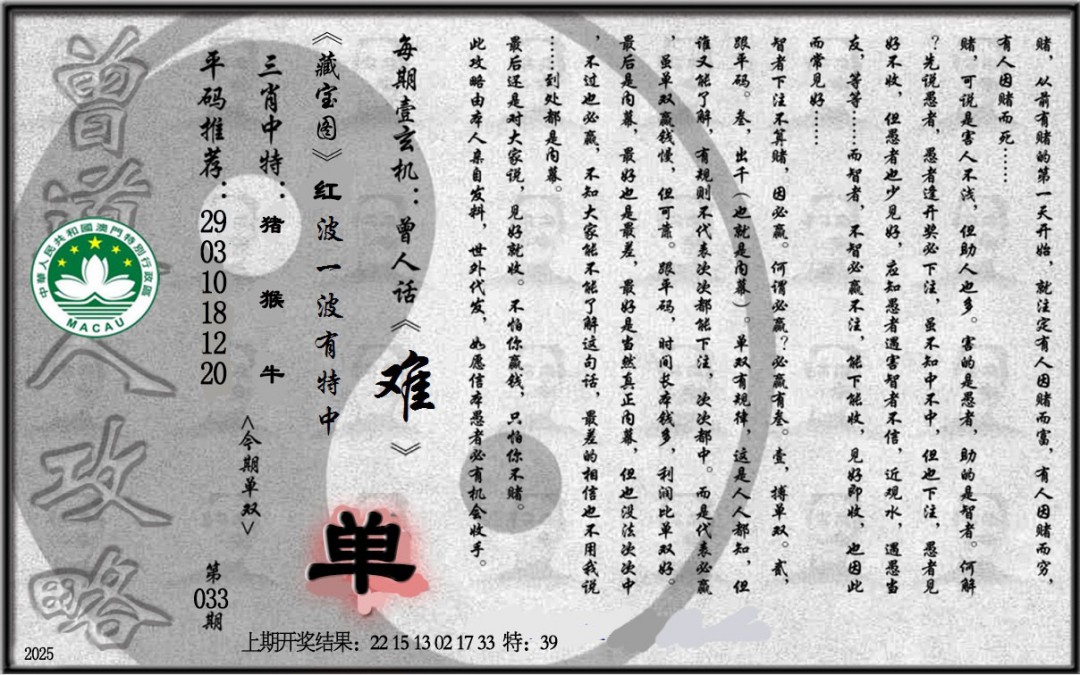 赌，从前有赌的第一天开始，就注定有人因赌而富，有人因赌而穷，
有人因赌而死……
赌，可说是害人不浅，但助人也多。害的是愚者，助的是智者。何解
？先说愚者，愚者逢开奖必下注，虽不知中不中，但也下注，愚者见
好不收，但愚者也少见好，应知愚者遇害智者不信，近观水，遇愚当
友，等等……而智者，不智必赢不注，能下能收，见好即收，也因此
而常见好……
智者下注不算赌，因必赢。何谓必赢？必赢有叁。壹，搏单双。贰，
跟平码。叁，出千（也就是内幕）。单双有规律，这是人人都知，但
谁又能了解，有规则不代表次次都能下注，次次都中。而是代表必赢
，虽单双赢钱慢，但可靠。跟平码，时间长本钱多，利润比单双好。
最后是内幕，最好也是最差，最好是当然真正内幕，但也没法次次中
，不过也必赢，不知大家能不能了解这句话，最差的相信也不用我说
……到处都是内幕。
最后还是对大家说，见好就收。不怕你赢钱，只怕你不赌。
此攻略由本人亲自发料，世外代发，如愿信本愚者必有机会收手。
每期壹玄机：曾人话《难》
《藏宝图》红波一波有特中
三肖中特：猪 猴 牛
平码推荐：29 03 10 18 12 20
<今期单双>
单
第033期
曾道人攻略
中華人民共和國澳門特別行政區
MACAU
上期开奖结果：22 15 13 02 17 33 特：39
2025